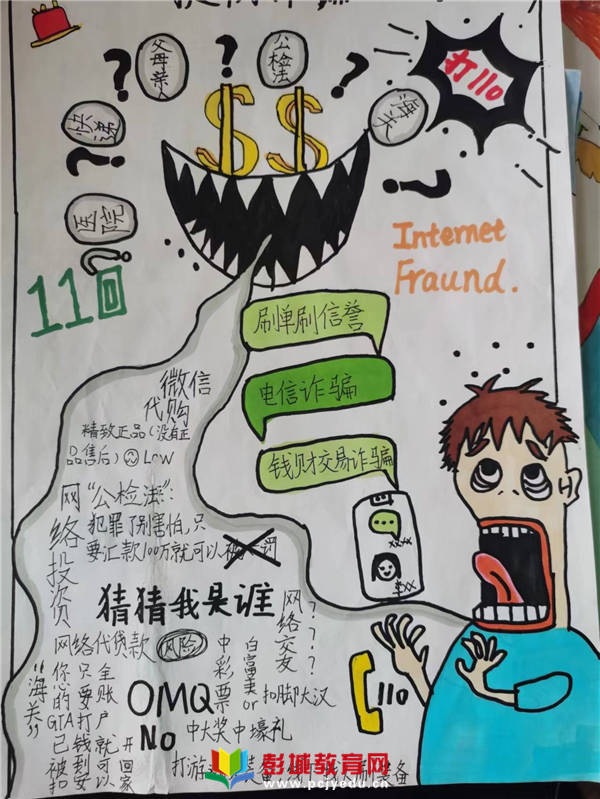 父母亲人
公检法
海关
快递
医院
打110
110
Internet
Fraund.
刷单刷信誉
电信诈骗
钱财交易诈骗
微信
代购
精致正品(没有正
品售后) LOW
网络投资
"公检法":
犯罪了别害怕,只
要汇款100万就可以
猜猜我是谁
网络交友???
网络代贷款
风险
中彩票
白富美or扣脚大汉
OMQ
NO 中大奖中壕礼
110
"海关"
你的GTA已被扣
只要打钱到
全账户就可以
开回家
彭城教育网
www.pcjyedu.cn